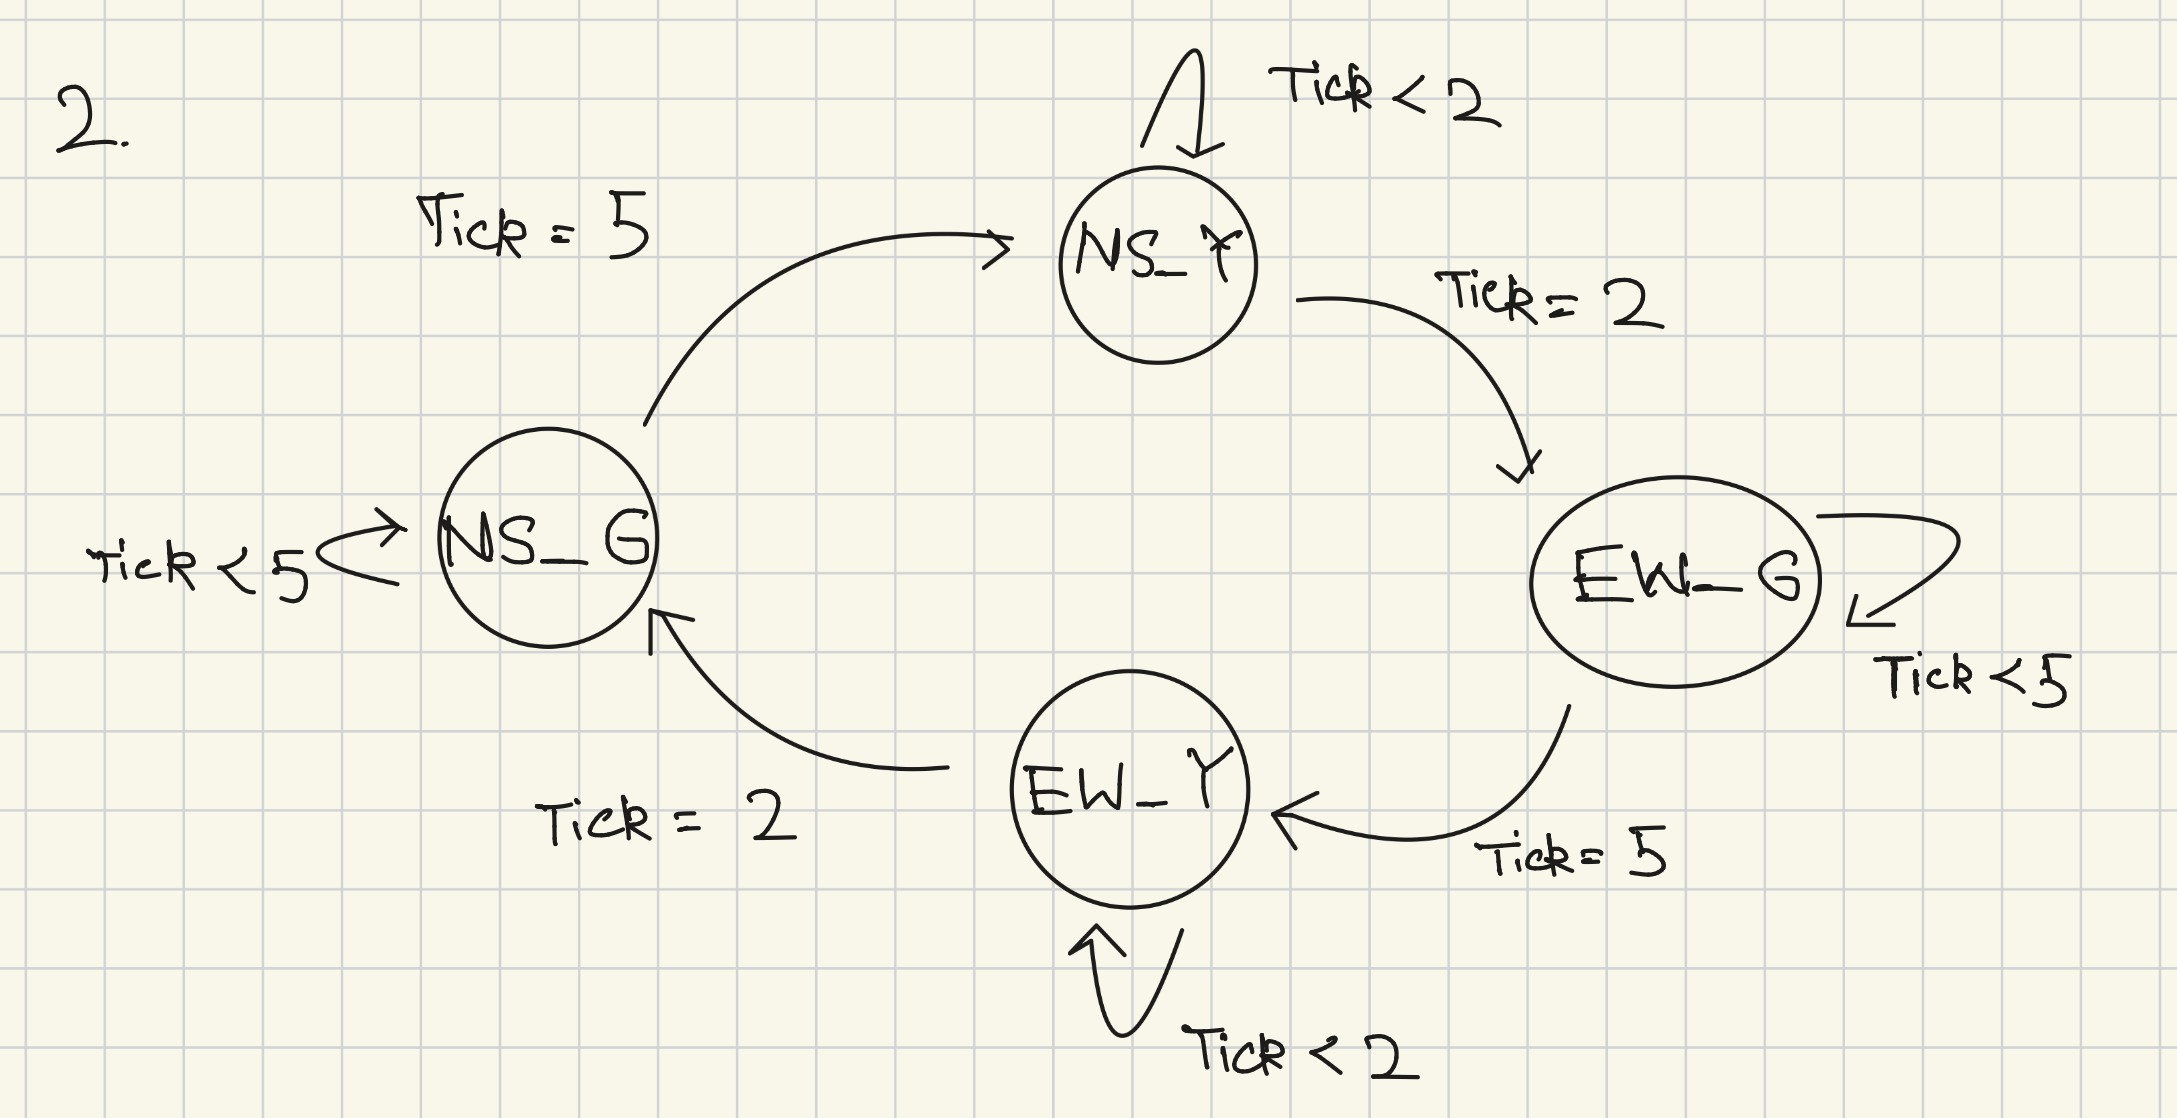 2.
Tick < 2
Tick = 5
NS_Y
Tick = 2
NS_G
Tick < 5
EW_G
Tick < 5
EW_Y
Tick = 2
Tick = 5
Tick < 2